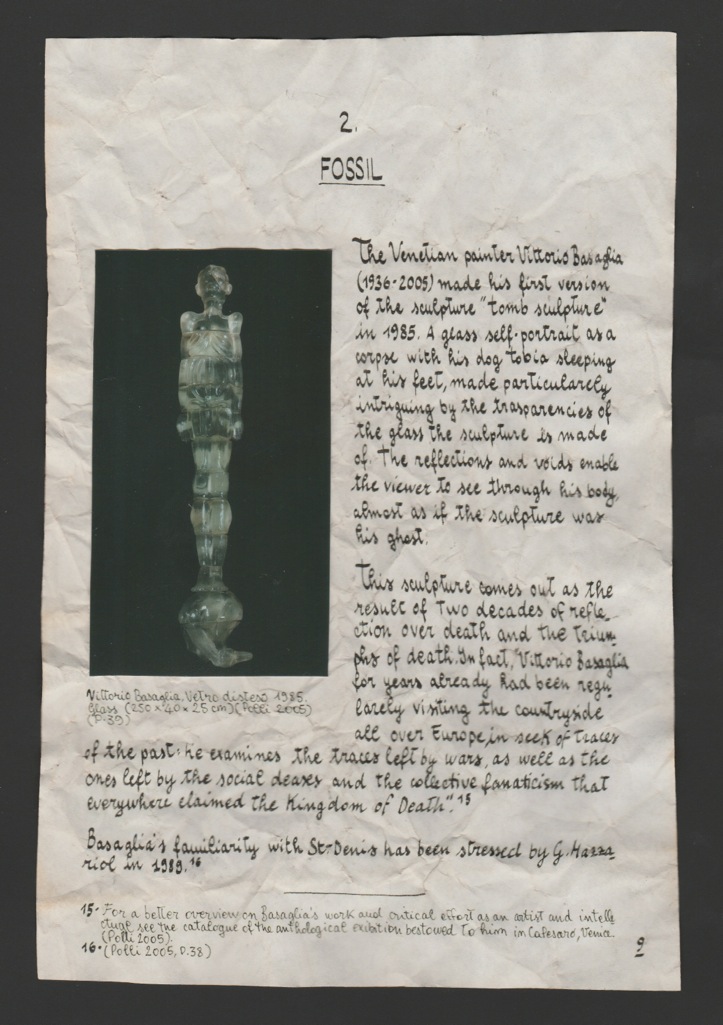 2.
FOSSIL
The Venetian painter Vittorio Basaglia
(1936-2005) made his first version
of the sculpture "tomb sculpture"
in 1985. A glass self-portrait as a
corpse with his dog tobia sleeping
at his feet, made particularely
intriguing by the trasparencies of
the glass the sculpture is made
of. The reflections and voids enable
the viewer to see through his body,
almost as if the sculpture was
his ghost.
This sculpture comes out as the
result of two decades of refle_
ction over death and the trium_
phs of death. In fact, "Vittorio Basaglia
for years already had been regu_
larely visiting the countryside
all over Europe, in seek of traces
of the past: he examines the traces left by wars, as well as the
ones left by the social deases and the collective fanaticism that
everywhere claimed the Kingdom of Death".15
Basaglia's familiarity with St-Denis has been stressed by G. Mazza_
riol in 1989.16
Vittorio Basaglia, Vetro disteso 1985.
Glass (250 x 40 x 25 cm) (Polli 2005)
(P.39)
15- For a better overview on Basaglia's work and critical effort as an artist and intelle_
ctual see the catalogue of the anthological exibition bestowed to him in Cafesaro, Venice.
(Polli 2005).
16- (Polli 2005, P.38)
9